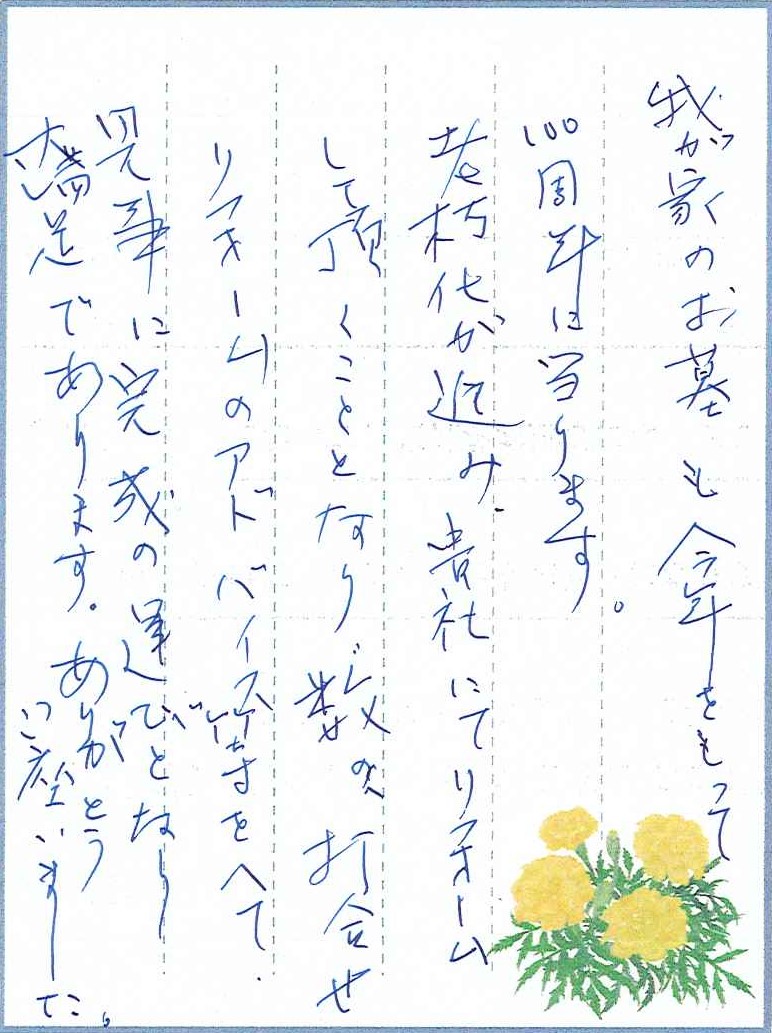 我が家のお墓も今年をもって
100周年に当ります。
老朽化が進み、貴社にてリフォーム
して頂くこととなり、数回、打合せ
リフォームのアドバイス等をへて、
見事に完成の運びとなり
大満足であります。ありがとう
ご座いました。